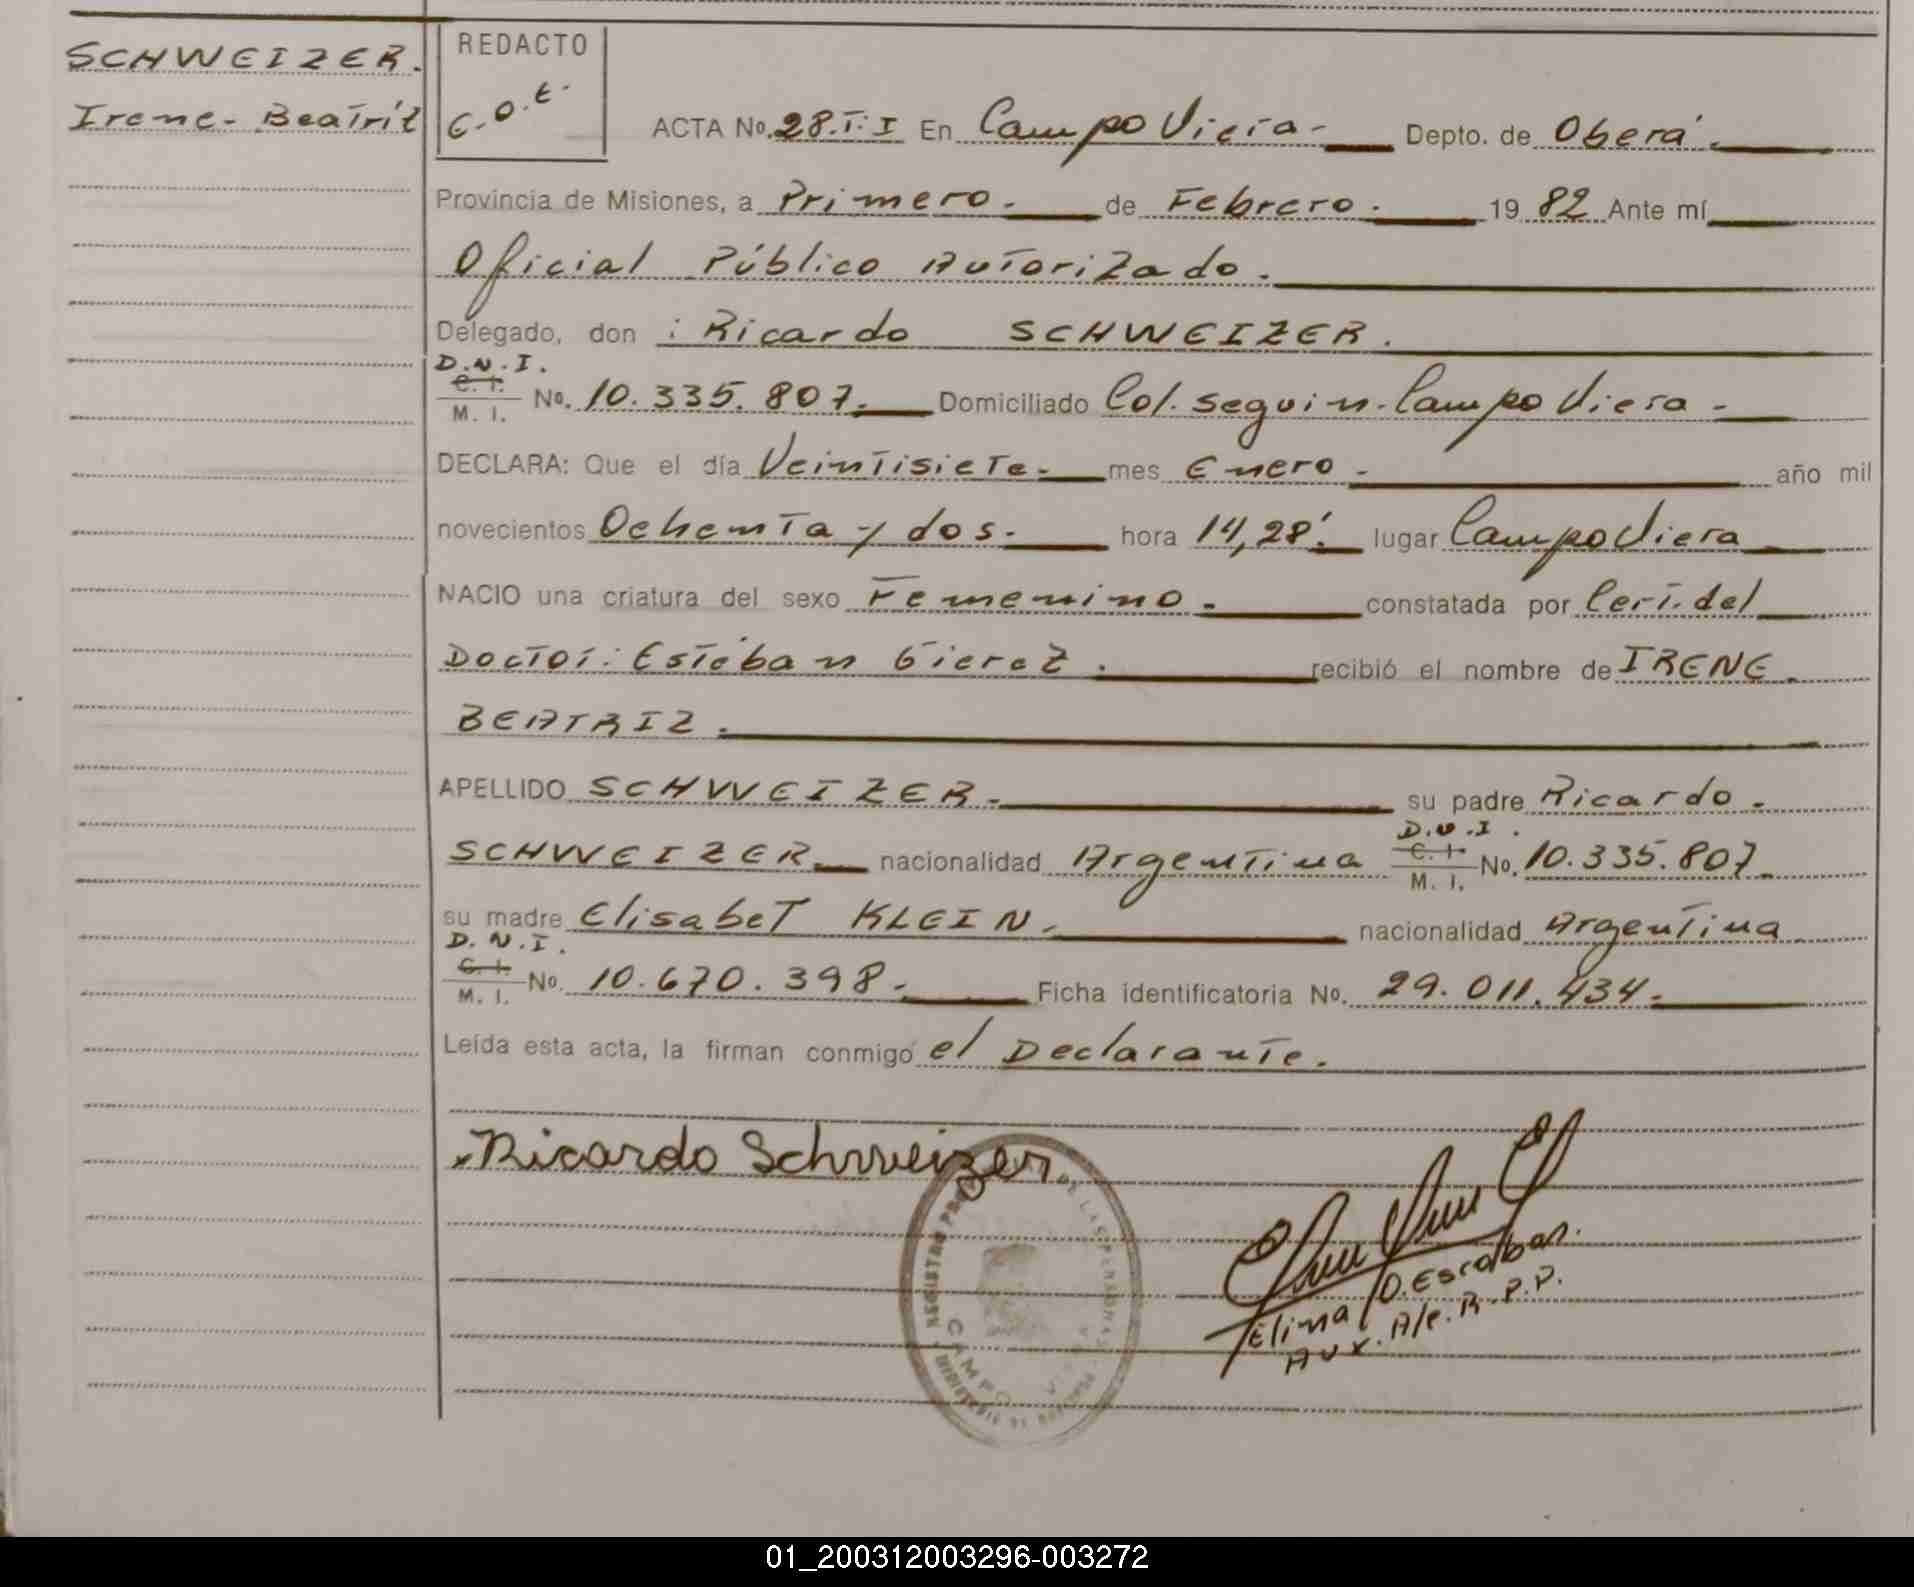 SCHWEIZER.
Irene- Beatriz
REDACTO
E.O.E.
ACTA No. 28.T: I En Campo Viera- Depto. de Oberá.
Provincia de Misiones, a Primero. de Febrero. 19 82 Ante mí
Oficial Público Autorizado.
Delegado, don : Ricardo SCHWEIZER.
D.N.I.
C. I.
M. I. No. 10.335.807. Domiciliado Col. seguin- Campo Viera -
DECLARA: Que el día Veintisiete- mes Enero - año mil
novecientos Ochenta y dos. hora 14,28'. lugar Campo Viera
NACIO una criatura del sexo Femenino - constatada por Cert. del
Doctor: Esteban Gierez . recibió el nombre de IRENE
BEATRIZ.
APELLIDO SCHWEIZER - su padre Ricardo -
SCHWEIZER nacionalidad Argentina D.N.I. C. I. M. I. No. 10.335.807
su madre Elisabet KLEIN. nacionalidad Argentina
D.N.I.
C. I.
M. I. No. 10.670.398. Ficha identificatoria No. 29.011.434.
Leída esta acta, la firman conmigo el Declarante.
Ricardo Schweizer
REGISTRO DE LAS PERSONAS
CAMPO VIERA
MINISTERIO DE
Elina O. Escobar.
Aux. A/c. R.P.P.
01_200312003296-003272